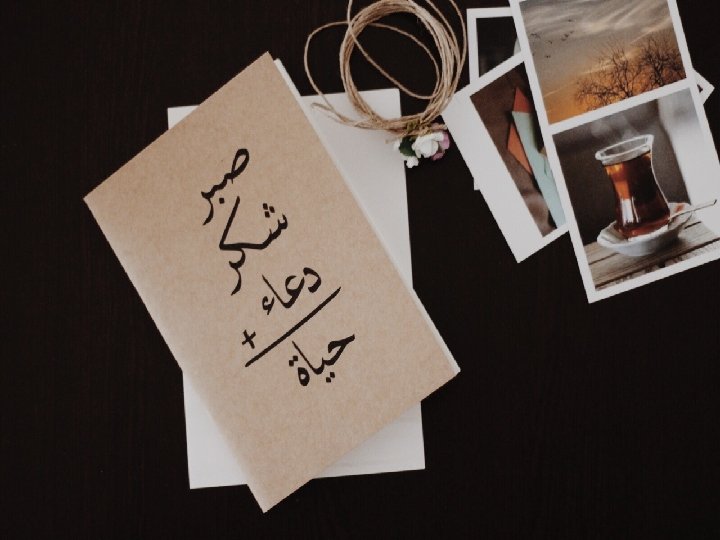 صبر
شكر
دعاء
+
حياة